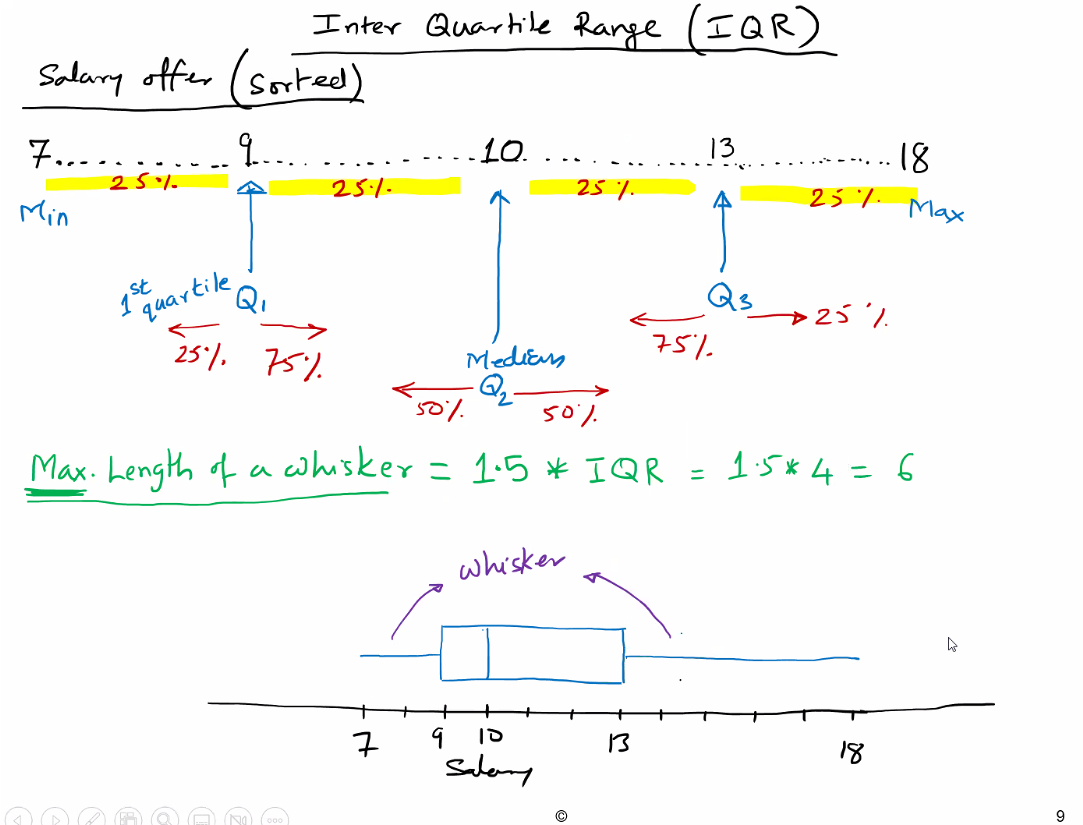 Inter Quartile Range (IQR)
Salary offer (sorted)
7 9 10 13 18
25% 25% 25% 25%
Min Max
1st quartile Q1 Q3
25% 75% 75% 25%
Median
Q2
50% 50%
Max. Length of a whisker = 1.5 * IQR = 1.5 * 4 = 6
whisker
7 9 10 13 18
Salary
© 9